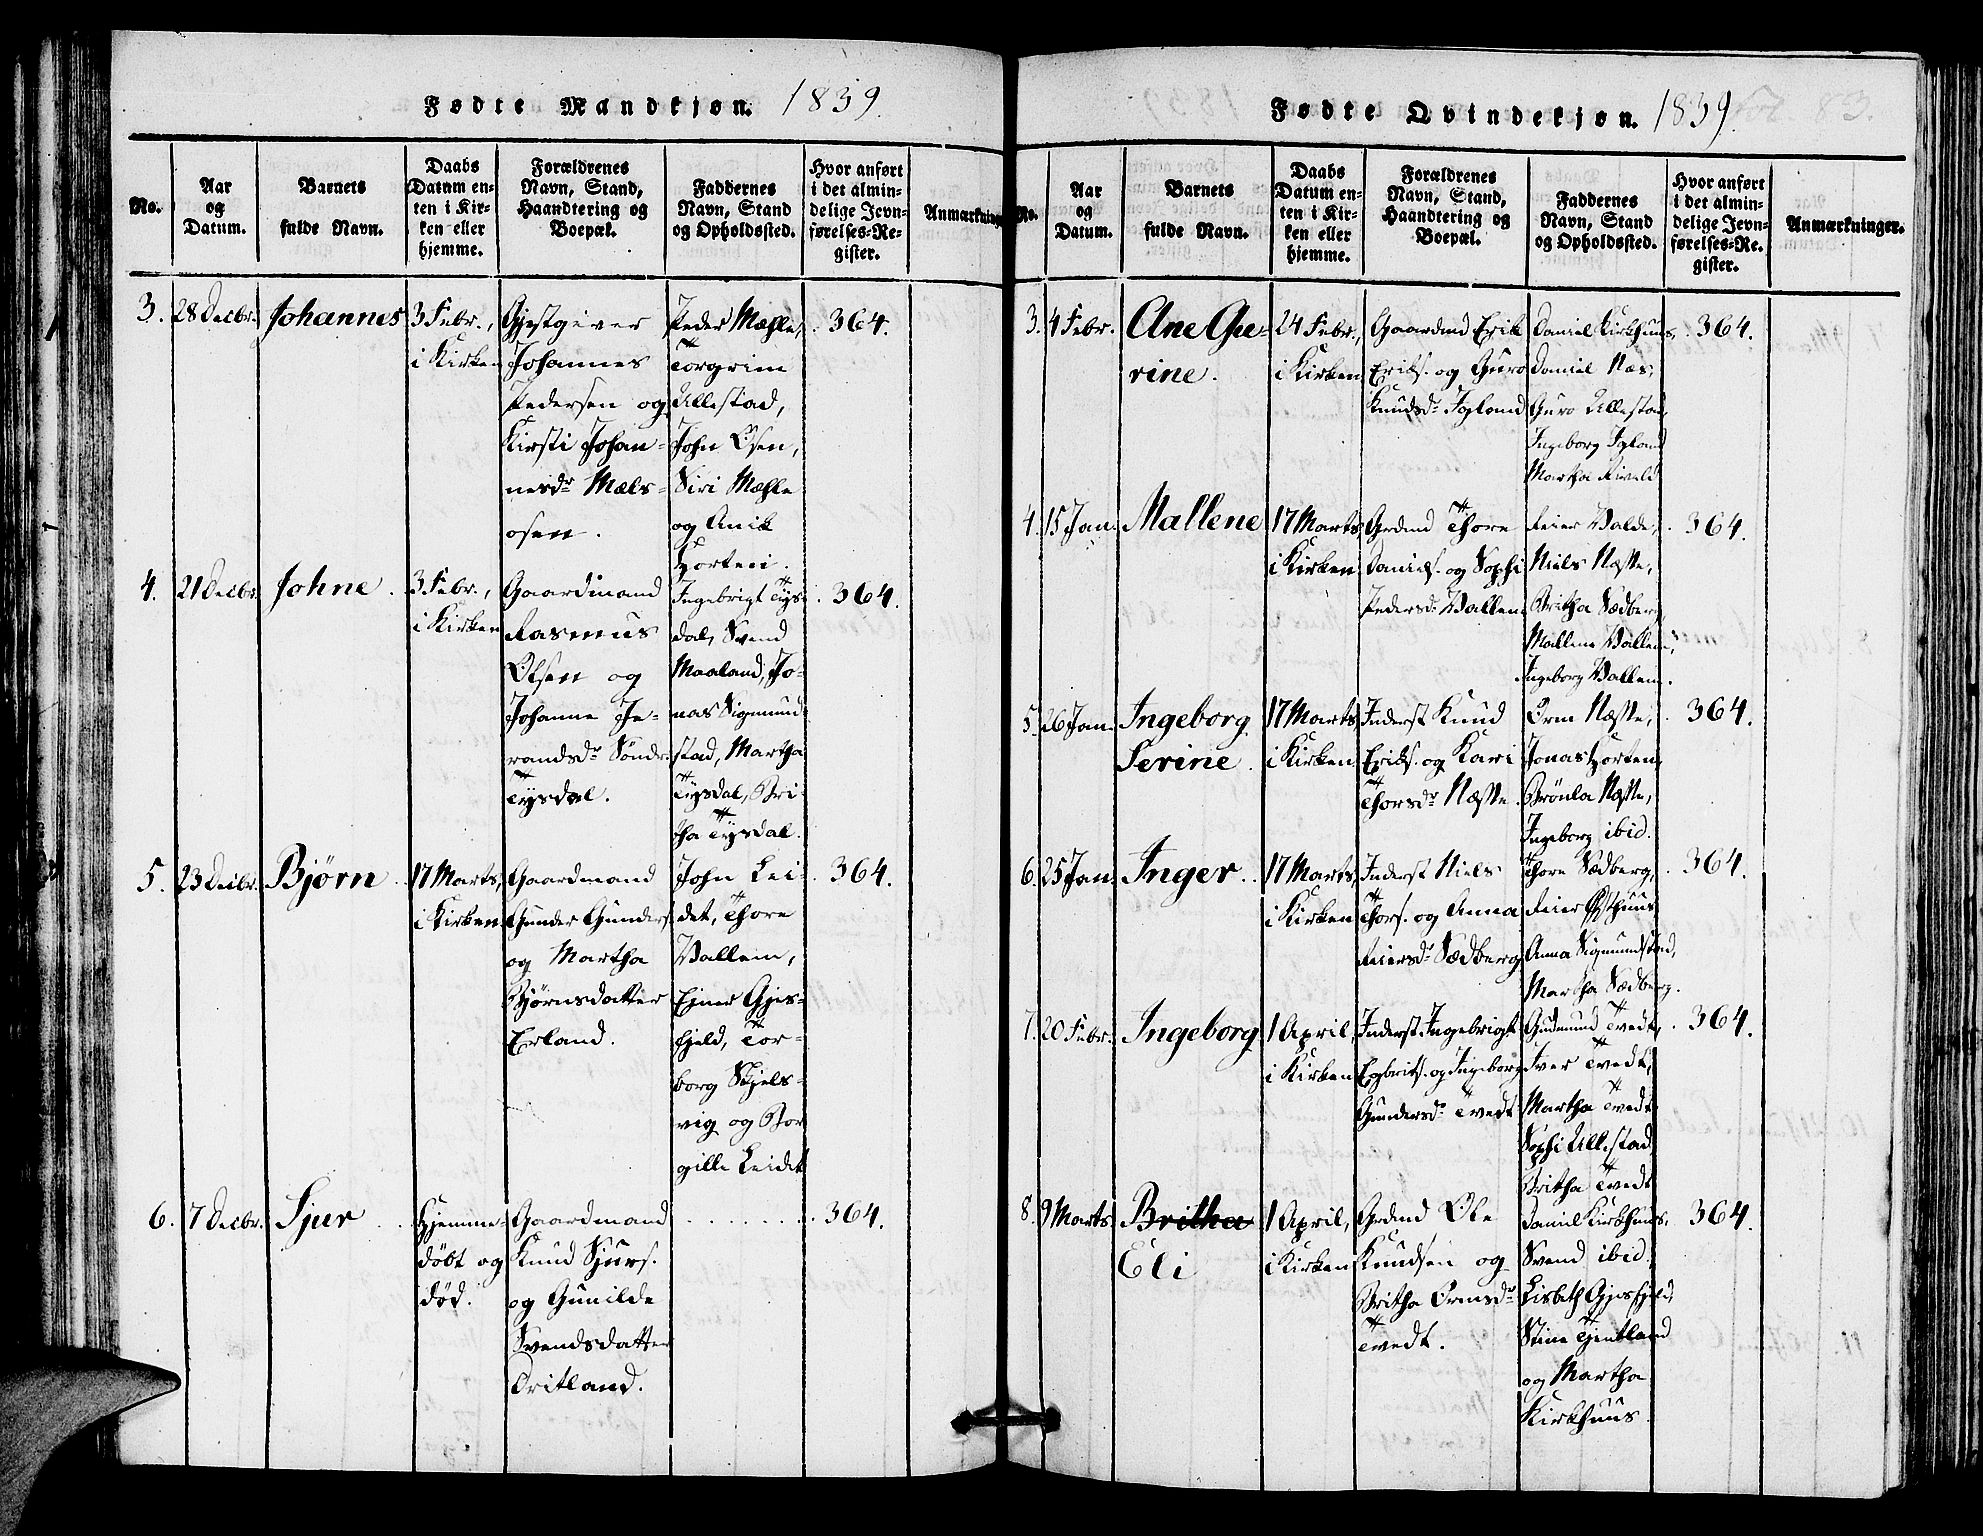 Fødte Mandkjøn. 1839.
No.
Aar
og
Datum.
Barnets
fulde Navn.
Daabs
Datum en-
ten i Kir-
ken eller
hjemme.
Forældrenes
Navn, Stand,
Haandtering og
Boepæl.
Faddernes
Navn, Stand
og Opholdssted.
Hvor anført
i det almin-
delige Jevn-
førelses-Re-
gister.
Anmærkninger
3. 28 Decbr. Johannes
3 Febr.,
i Kirken
Gjestgiver
Johannes
Pedersen og
Kirsti Johan-
nesdr Mæls-
osen.
Peder Mæhle,
Torgrim
Ullestad,
John Osen,
Siri Mæhle
og Anik
Horteni.
364.
4. 21 Decbr. Johne.
3 Febr.,
i Kirken
Gaardmand
Rasmus
Olsen og
Johanne Je-
randsdr Söndr.
Tysdal.
Ingebrigt Tys-
dal, Svend
Maaland, Jo-
nas Sigmund-
stad, Martha
Tysdal, Bri-
tha Tysdal.
364.
5. 23 Decbr. Bjørn
17 Marts,
i Kirken
Gaardmand
Gunder Gunders.
og Martha
Bjørnsdatter
Erland.
John Lei-
det, Thore
Vallem,
Ejner Gjes-
fjeld, Tor-
borg Skjels-
vig og Bor
gille Leidet
364.
6. 7 Decbr. Sjur
Hjemme-
døbt og
død.
Gaardmand
Knud Sjurs.
og Gunilde
Svendsdatter
Tritland.
364.
Fødte Qvindekjøn. 1839.
No.
Aar
og
Datum.
Barnets
fulde Navn.
Daabs
Datum en-
ten i Kir-
ken eller
hjemme.
Forældrenes
Navn, Stand,
Haandtering og
Boepæl.
Faddernes
Navn, Stand
og Opholdssted.
Hvor anført
i det almin-
delige Jevn-
førelses-Re-
gister.
Anmærkninger.
3. 4 Febr. Ane Gu-
rine.
24 Febr.,
i Kirken
Gaardmd Erik
Eriks. og Guro
Knudsdr Igland
Daniel Kirkhuus,
Daniel Næs,
Guro Ullestad,
Ingeborg Igland
Martha
364.
4. 15 Jan. Mallene
17 Marts,
i Kirken
Grdmd Thore
Daniels. og Sophi
Pedersdr Vallem
Reier Valde,
Niels Næsse,
Britha Sædberg,
Mallene Vallem,
Ingeborg Vallem.
364.
5. 26 Jan. Ingeborg
Serine.
17 Marts,
i Kirken
Inderst Knud
Eriks. og Kari
Thorsdr Næsse.
Orm Næsse,
Jonas Horten,
Brönla Næsse,
Ingeborg ibid.
364.
6. 25 Jan. Inger
17 Marts,
i Kirken
Inderst Niels
Thors. og Anna
Reiersdr Sædberg
Thore Sædberg,
Reier Østhuus,
Anna Sigmundstad,
Martha Sædberg.
364.
7. 20 Febr. Ingeborg
1 April,
i Kirken
Inderst Ingebrigt
Egbrits. og Ingeborg
Gundersdr Tvedt
Gudmund Tvedt,
Iver Tvedt,
Martha Tvedt
Sophi Ullestad
Britha Tvedt
364.
8. 9 Marts Britha
Eli
1 April,
i Kirken
Grdmd Ole
Knudsen og
Britha Ormsdr
Tvedt.
Daniel Kirkhuus,
Svend ibid.,
Lisbeth Gjesfjeld,
Stine Tjentland
og Martha
Kirkhuus
364.